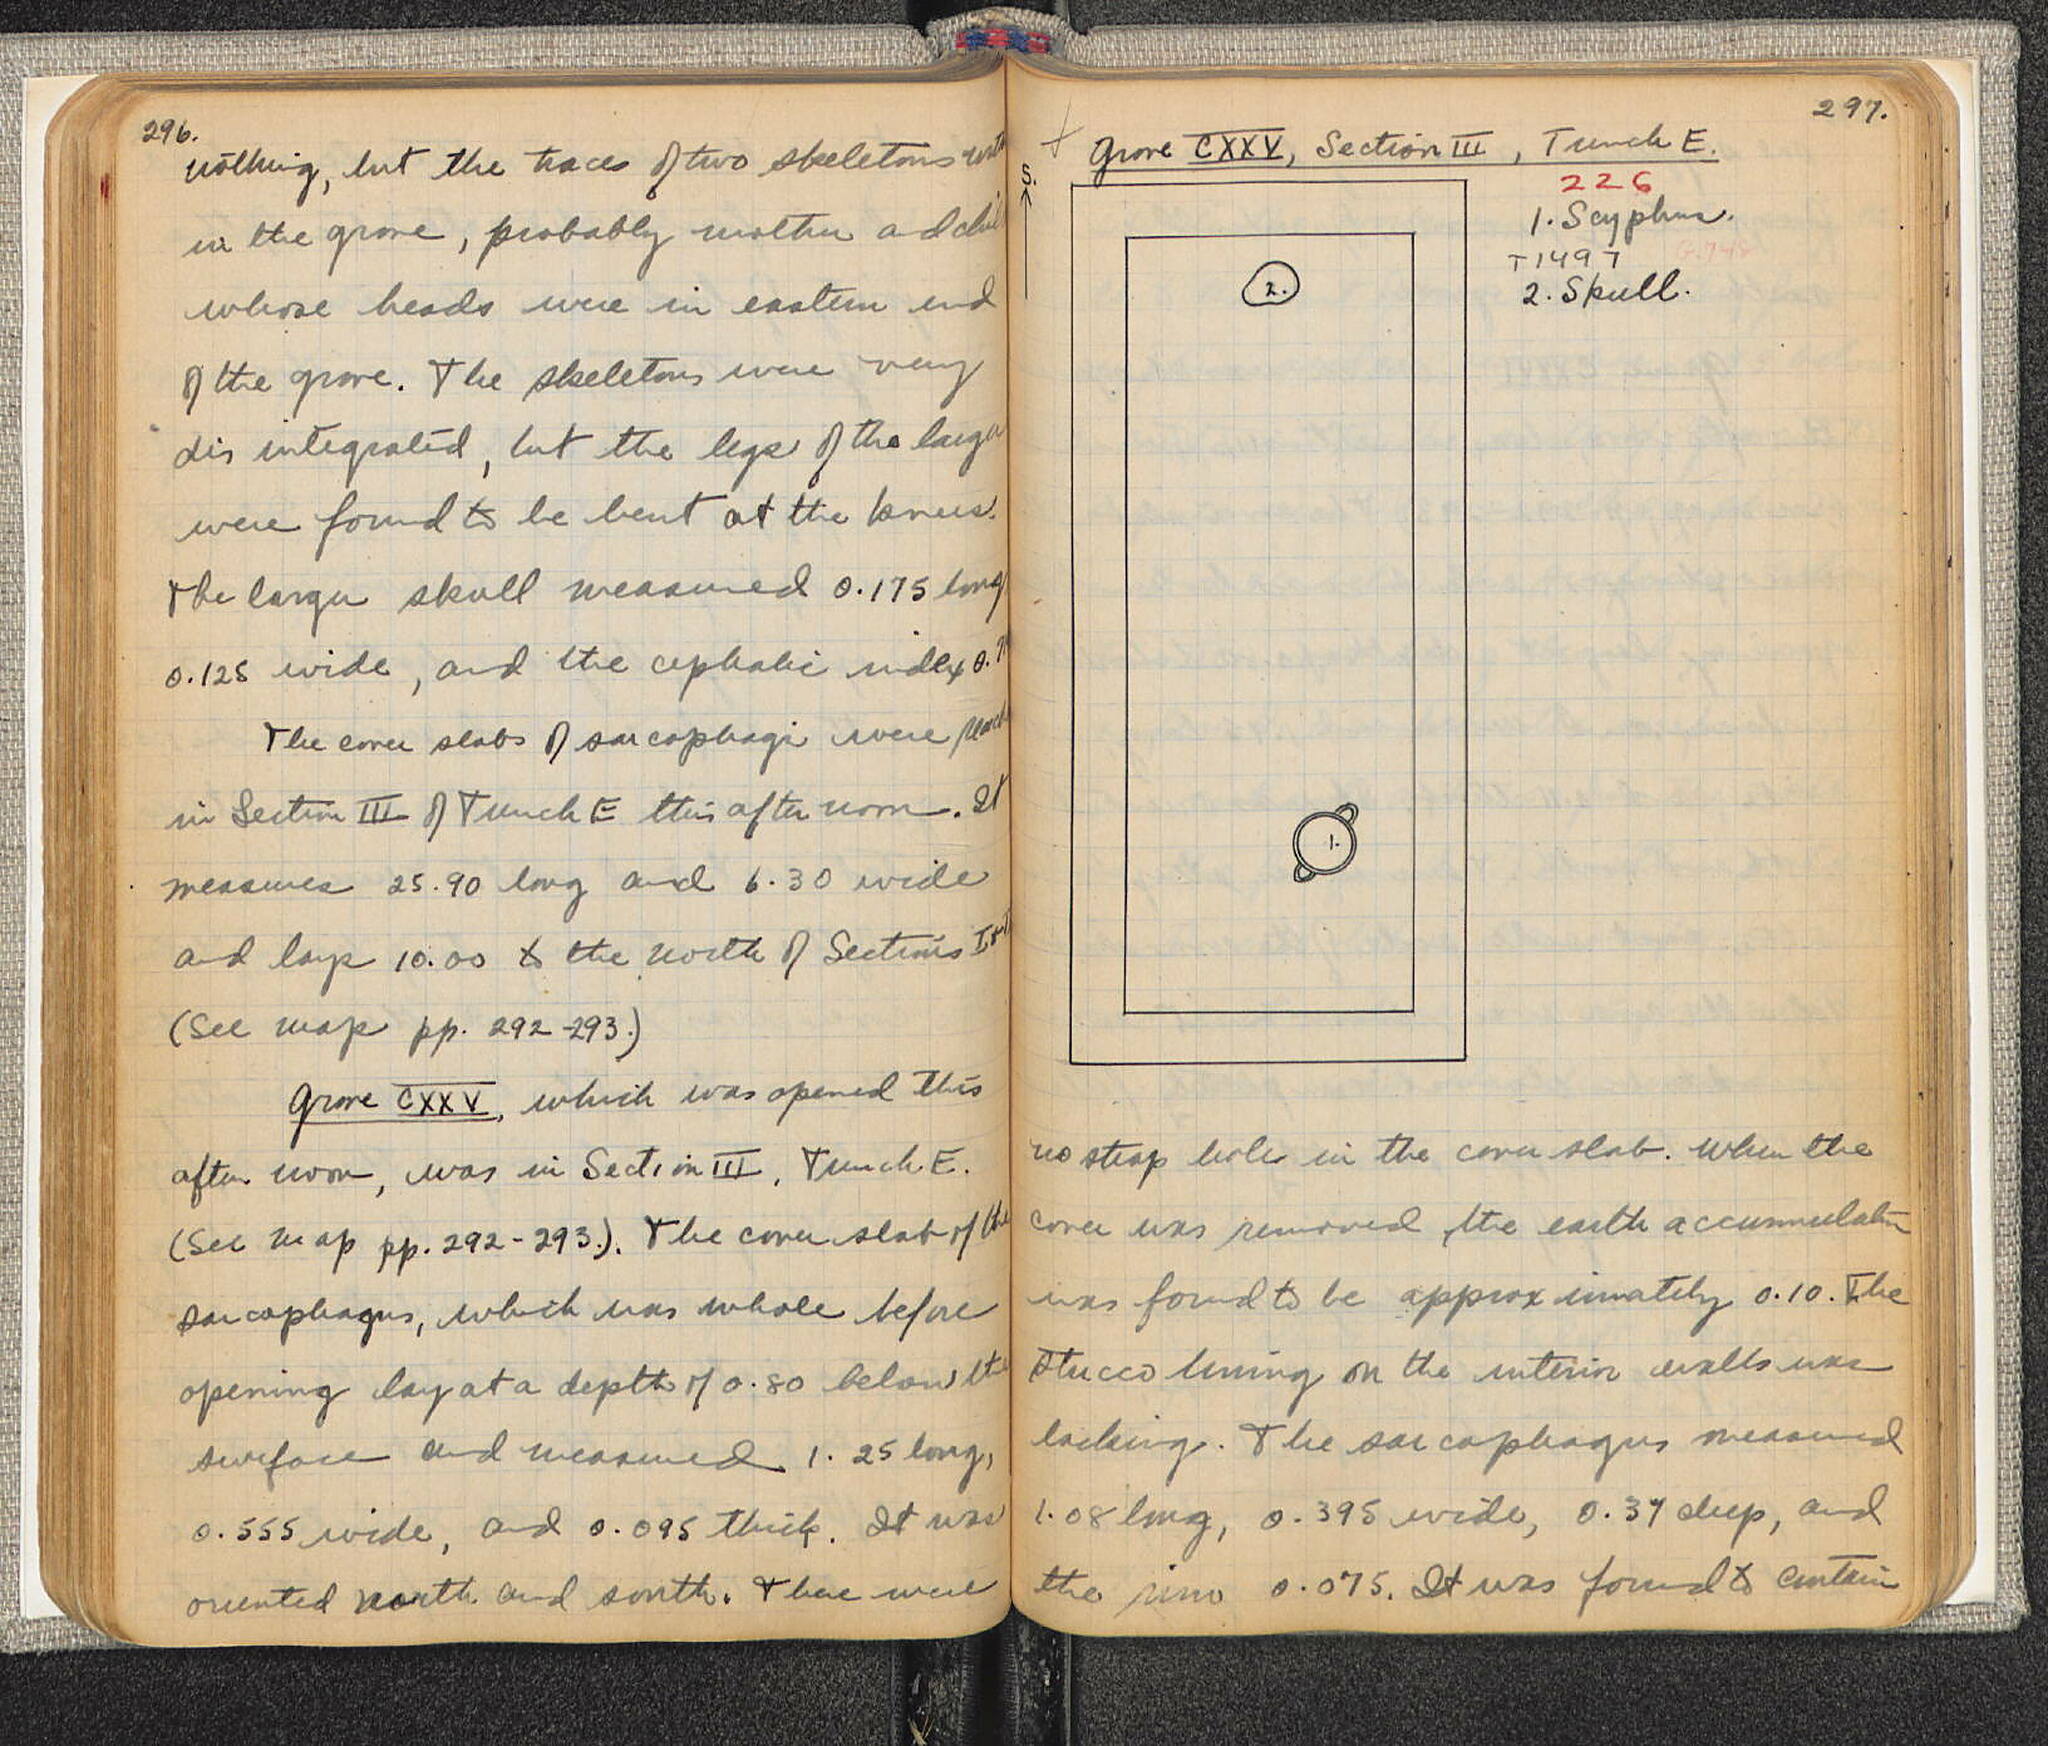 296.
nothing, but the traces of two skeletons
in the grave, probably mother and
whose heads were in eastern end
of the grave. The skeletons were very
disintegrated, but the legs of the larger
were found to be bent at the knees.
The larger skull measured 0.175 long
0.125 wide, and the cephalic index
The cover slabs of sarcophagi were
in Section III of Trench E this afternoon. It
measures 25.90 long and 6.30 wide
and lays 10.00 to the north of Sections
(See map pp. 292-293.)
Grave CXXV, which was opened this
afternoon, was in Section III, Trench E.
(See map pp. 292-293.). The cover slab of the
sarcophagus, which was whole before
opening lay at a depth of 0.80 below the
surface and measured 1.25 long,
0.555 wide, and 0.095 thick. It was
oriented north and south. There were
297.
Grave CXXV, Section III, Trench E.
S.
226
1. Scyphus.
T1497
2. Skull.
2.
1.
no strap holes in the cover slab. When the
cover was removed, the earth accumulation
was found to be approximately 0.10. The
stucco lining on the interior walls was
lacking. The sarcophagus measured
1.08 long, 0.395 wide, 0.37 deep, and
the rim 0.075. It was found to contain